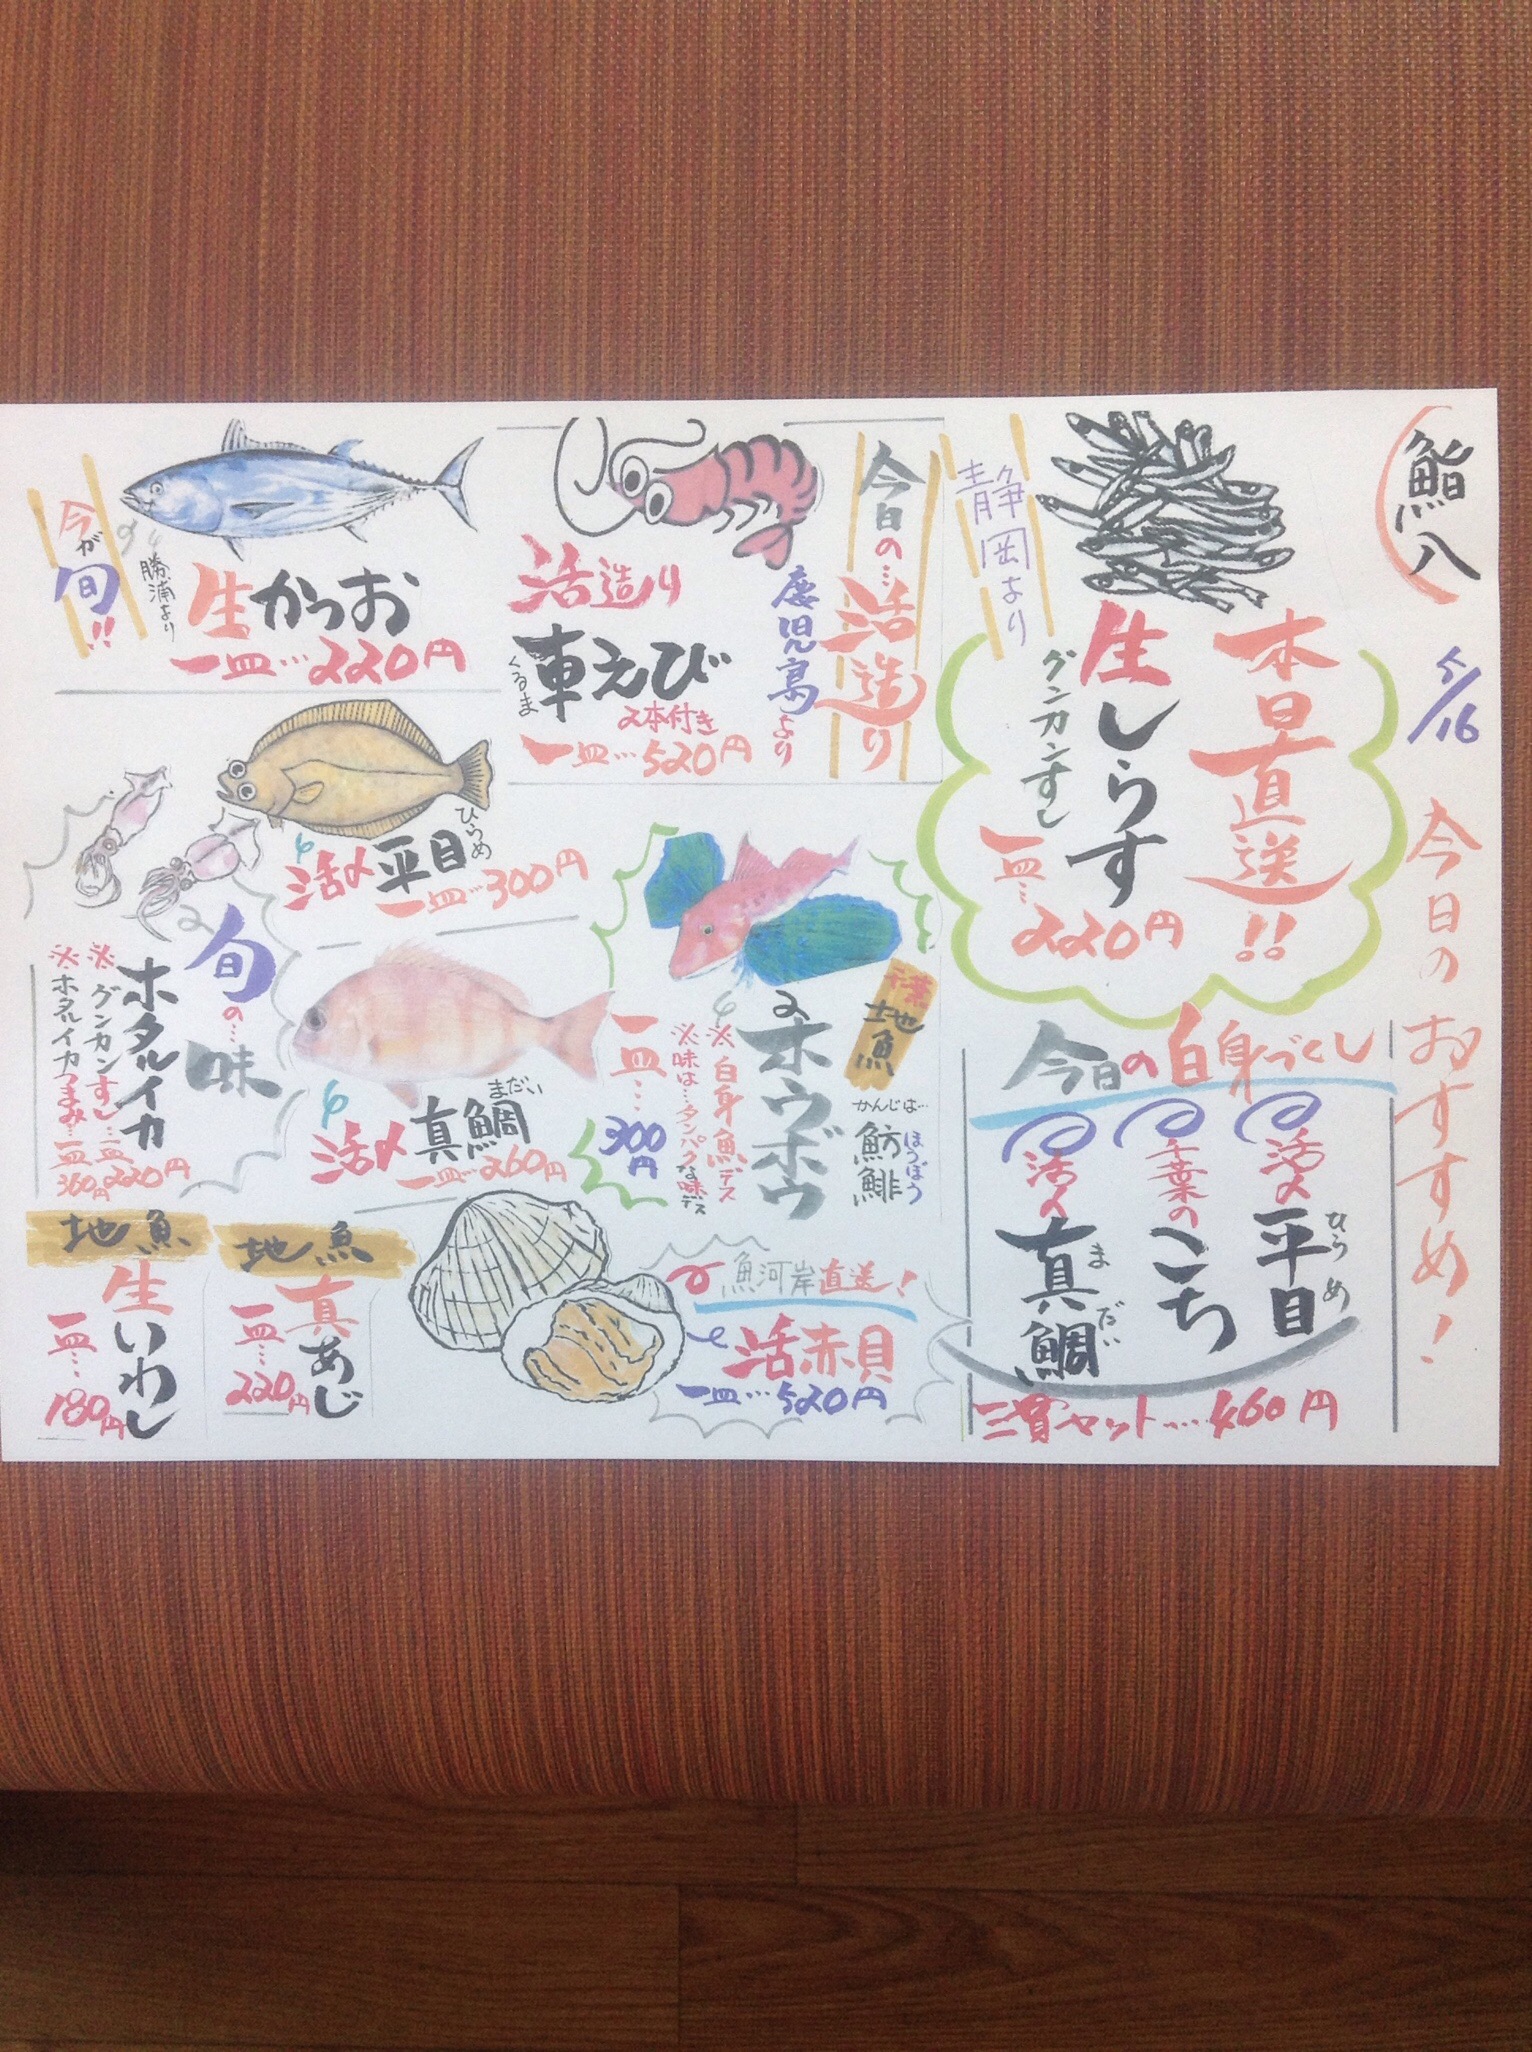 鮨八
5/16
今日のおすすめ!
本日直送!!
生しらす
グンカンすし
一皿…220円
静岡より
今日の白身づくし
活〆平目
ひらめ
千葉のこち
活〆真鯛
まだい
三貫セット……460円
今日の…活造り
鹿児島より
活造り
車えび
くるま
2本付き
一皿…520円
地魚
ホウボウ
かんじは…
魴鮄
ほうぼう
※白身魚デス
※味は…タンパクな味デス
一皿…300円
魚河岸直送!
活赤貝
一皿…520円
今が旬!!
勝浦より
生かつお
一皿…220円
活〆平目
ひらめ
一皿…300円
活〆真鯛
まだい
一皿…260円
旬の…味
ホタルイカ
※グンカンすし…一皿220円
※ホタルイカつまみ…一皿360円
地魚
真あじ
一皿…220円
地魚
生いわし
一皿…180円